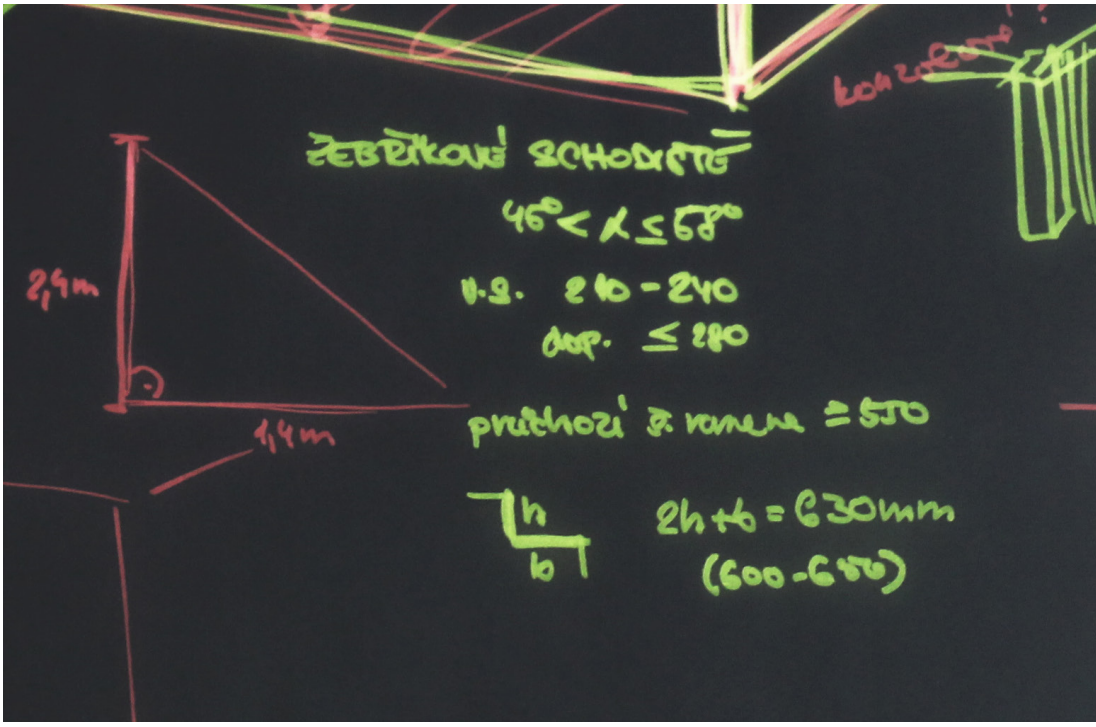 konzolové ! ?
ŽEBŘÍKOVÉ SCHODIŠTĚ
45° < α ≤ 58°
2,4m
v.s. 210-240
dop. ≤ 280
průchozí š. ramene ≥ 550
1,4m
h
b
2h+b = 630mm
(600-650)